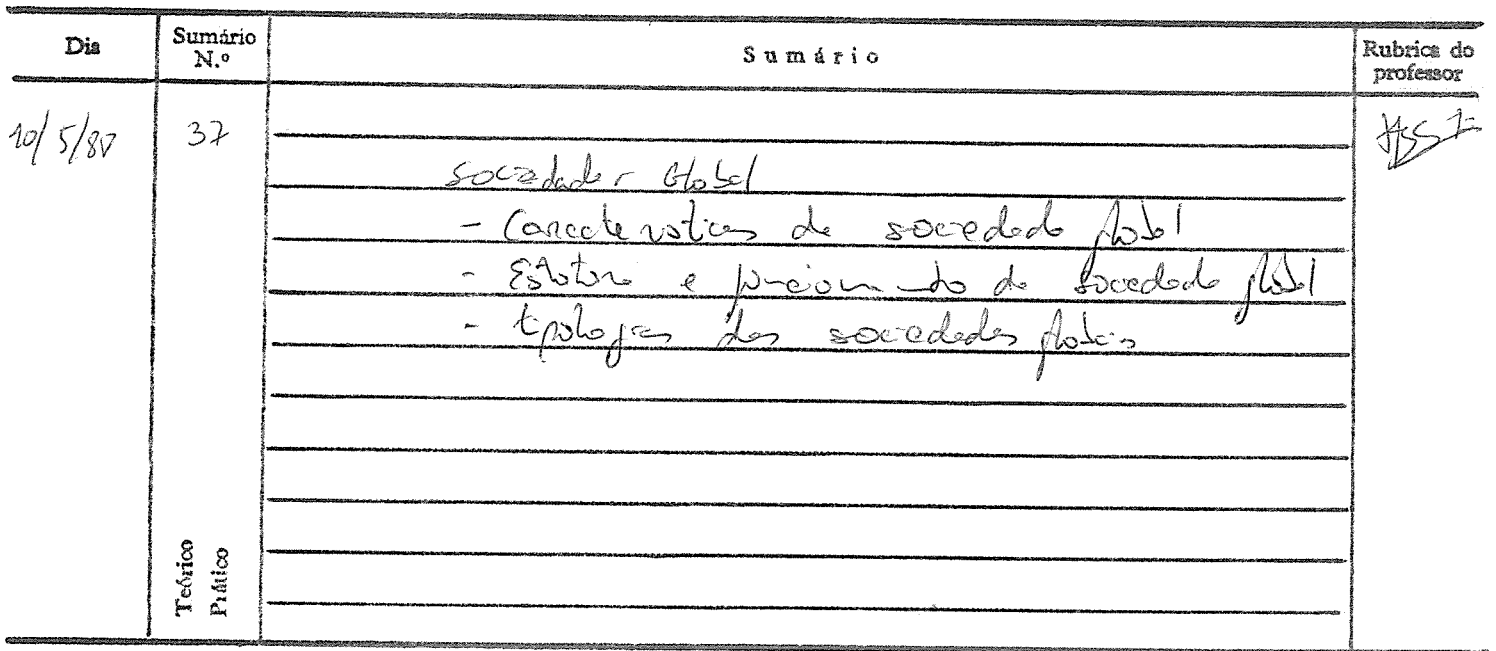 Dia Sumário N.º Sumário Rubrica do professor
10/5/80 37
Sociedade Global
- Características da sociedade global
- Estrutura e funcionamento da sociedade global
- tipologias das sociedades globais
Teórico
Prático